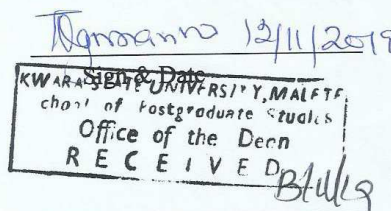 12/11/2019
Sign & Date
KWARA STATE UNIVERSITY, MALETE
chool of Postgraduate Studies
Office of the Dean
RECEIVED